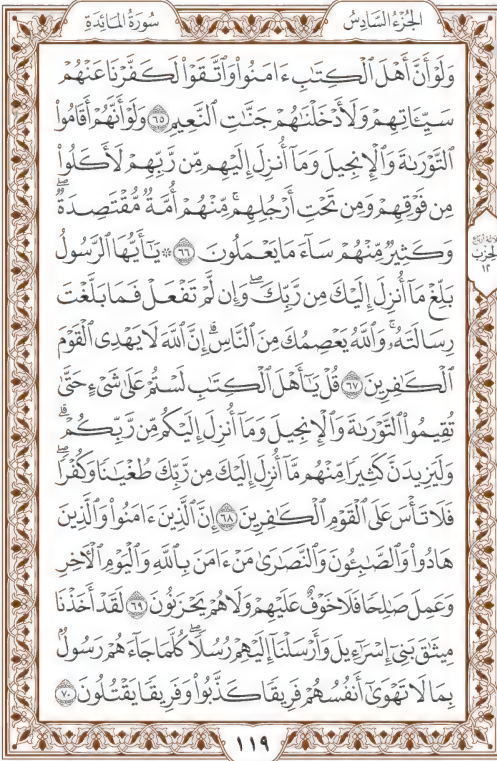 الجُزْءُ السَّادِسُ
سُورَةُ المَائِدَةِ
وَلَوْ أَنَّ أَهْلَ ٱلْكِتَٰبِ ءَامَنُوا۟ وَٱتَّقَوْا۟ لَكَفَّرْنَا عَنْهُمْ
سَيِّـَٔاتِهِمْ وَلَأَدْخَلْنَٰهُمْ جَنَّٰتِ ٱلنَّعِيمِ ٦٥ وَلَوْ أَنَّهُمْ أَقَامُوا۟
ٱلتَّوْرَىٰةَ وَٱلْإِنجِيلَ وَمَآ أُنزِلَ إِلَيْهِم مِّن رَّبِّهِمْ لَأَكَلُوا۟
مِن فَوْقِهِمْ وَمِن تَحْتِ أَرْجُلِهِم ۚ مِّنْهُمْ أُمَّةٌ مُّقْتَصِدَةٌ ۖ
وَكَثِيرٌ مِّنْهُمْ سَآءَ مَا يَعْمَلُونَ ٦٦ ۞ يَٰٓأَيُّهَا ٱلرَّسُولُ
بَلِّغْ مَآ أُنزِلَ إِلَيْكَ مِن رَّبِّكَ ۖ وَإِن لَّمْ تَفْعَلْ فَمَا بَلَّغْتَ
رِسَالَتَهُۥ ۚ وَٱللَّهُ يَعْصِمُكَ مِنَ ٱلنَّاسِ ۗ إِنَّ ٱللَّهَ لَا يَهْدِى ٱلْقَوْمَ
ٱلْكَٰفِرِينَ ٦٧ قُلْ يَٰٓأَهْلَ ٱلْكِتَٰبِ لَسْتُمْ عَلَىٰ شَىْءٍ حَتَّىٰ
تُقِيمُوا۟ ٱلتَّوْرَىٰةَ وَٱلْإِنجِيلَ وَمَآ أُنزِلَ إِلَيْكُم مِّن رَّبِّكُمْ ۗ
وَلَيَزِيدَنَّ كَثِيرًا مِّنْهُم مَّآ أُنزِلَ إِلَيْكَ مِن رَّبِّكَ طُغْيَٰنًا وَكُفْرًا ۖ
فَلَا تَأْسَ عَلَى ٱلْقَوْمِ ٱلْكَٰفِرِينَ ٦٨ إِنَّ ٱلَّذِينَ ءَامَنُوا۟ وَٱلَّذِينَ
هَادُوا۟ وَٱلصَّٰبِـُٔونَ وَٱلنَّصَٰرَىٰ مَنْ ءَامَنَ بِٱللَّهِ وَٱلْيَوْمِ ٱلْءَاخِرِ
وَعَمِلَ صَٰلِحًا فَلَا خَوْفٌ عَلَيْهِمْ وَلَا هُمْ يَحْزَنُونَ ٦٩ لَقَدْ أَخَذْنَا
مِيثَٰقَ بَنِىٓ إِسْرَٰٓءِيلَ وَأَرْسَلْنَآ إِلَيْهِمْ رُسُلًا ۖ كُلَّمَا جَآءَهُمْ رَسُولٌۢ
بِمَا لَا تَهْوَىٰٓ أَنفُسُهُمْ فَرِيقًا كَذَّبُوا۟ وَفَرِيقًا يَقْتُلُونَ ٧٠
ثلاثة أرباع
الحزب
١٢
١١٩